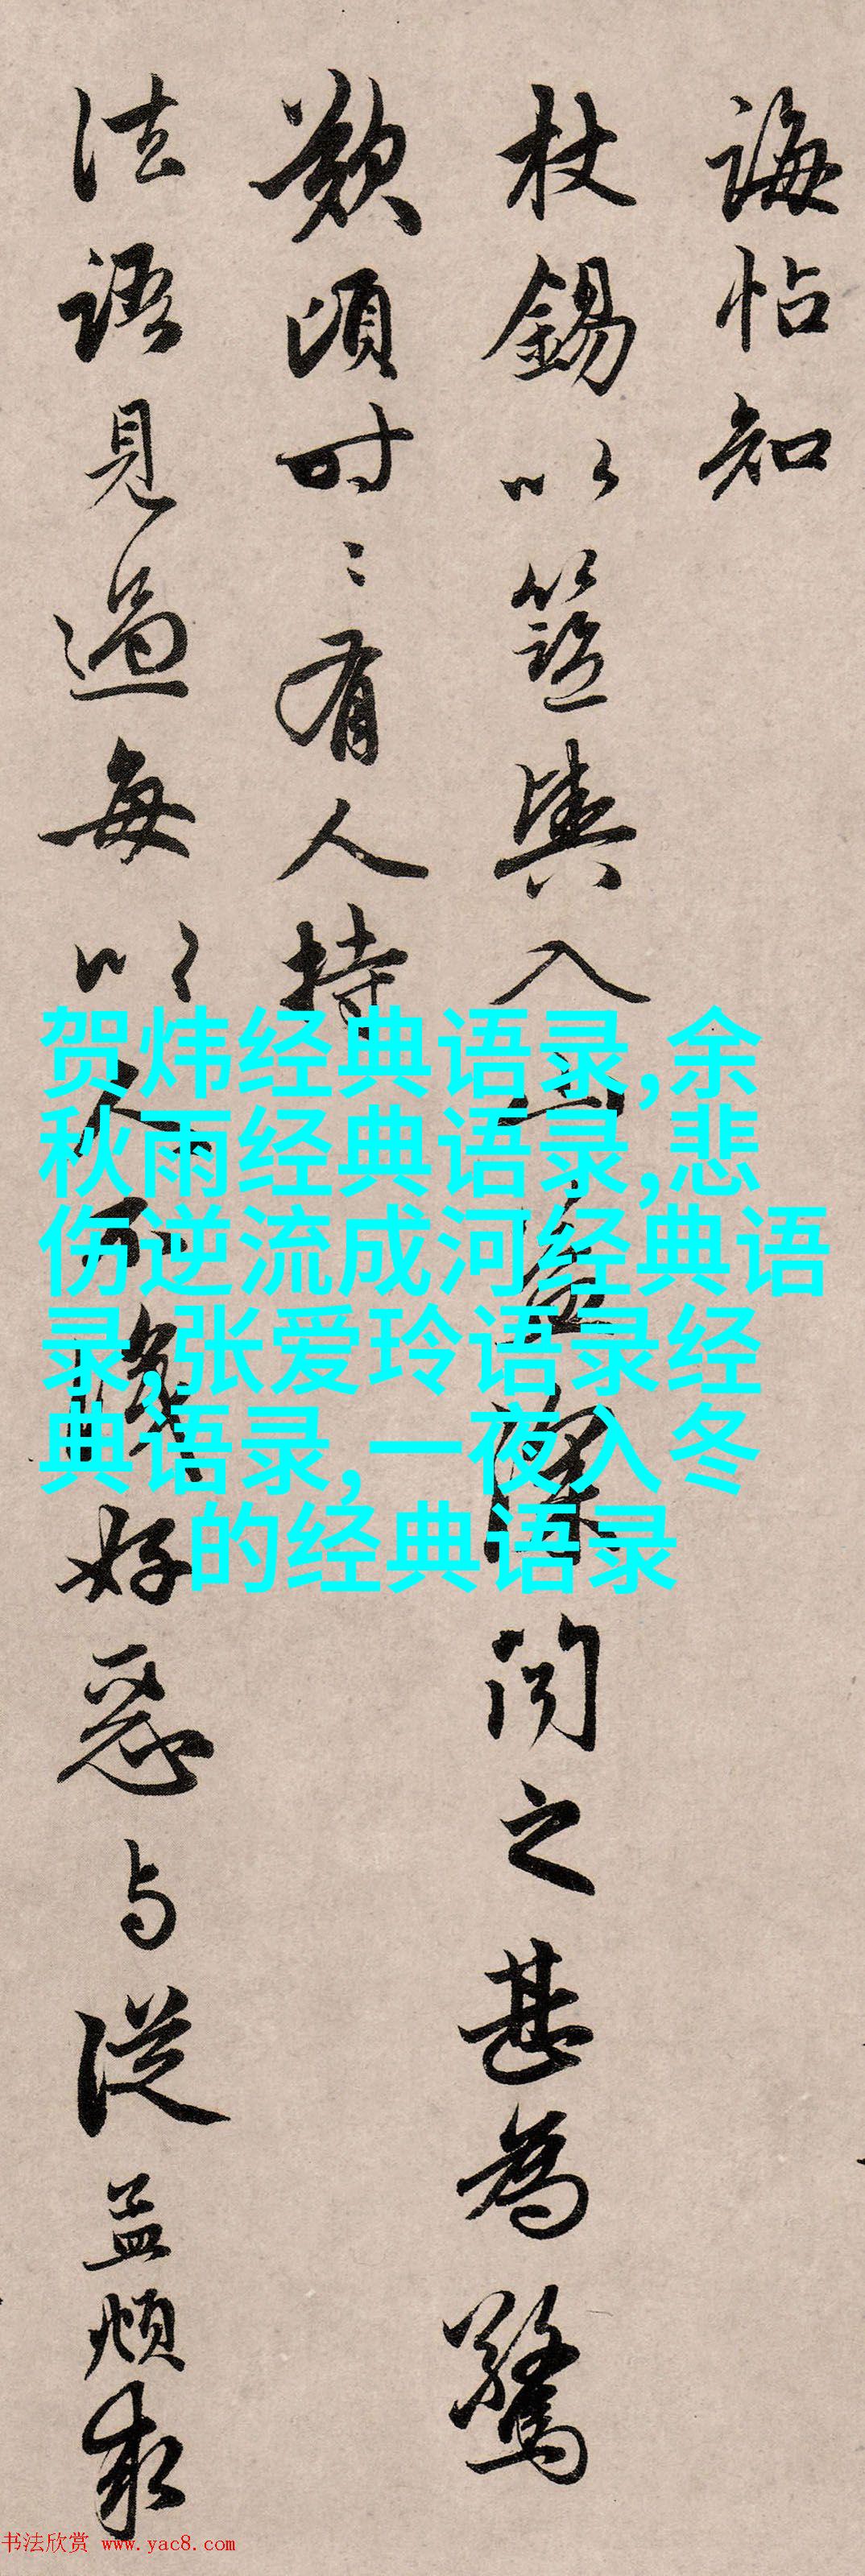 诲帖知
杖锡以篮舆入山益深闻之甚为惊
叹顷时〻有人持
法语见过每以人不
好恶与从益烦
贺炜经典语录,余
秋雨经典语录,悲
伤逆流成河经典语
录,张爱玲语录经
典语录,一夜入冬
的经典语录
书法欣赏 www.yac8.com